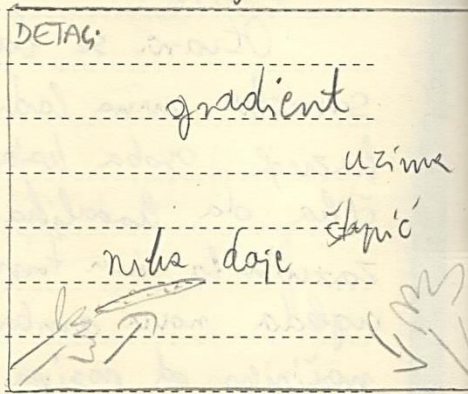 DETALJ:
gradient
uzima
štapić
ruka daje